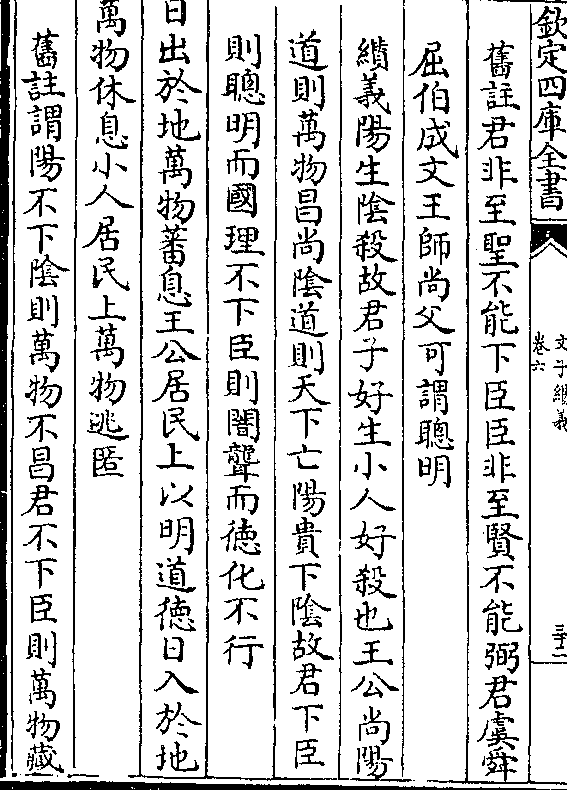 欽定四庫全書
文子纘義
卷六
三十二
舊註君非至聖不能下臣臣非至賢不能弼君虞舜
屈伯成文王師尚父可謂聰明
纘義陽生陰殺故君子好生小人好殺也王公尚陽
道則萬物昌尚陰道則天下亡陽貴下陰故君下臣
則聰明而國理不下臣則闇聾而德化不行
日出於地萬物蕃息王公居民上以明道德日入於地
萬物休息小人居民上萬物逃匿
舊註謂陽不下陰則萬物不昌君不下臣則萬物藏